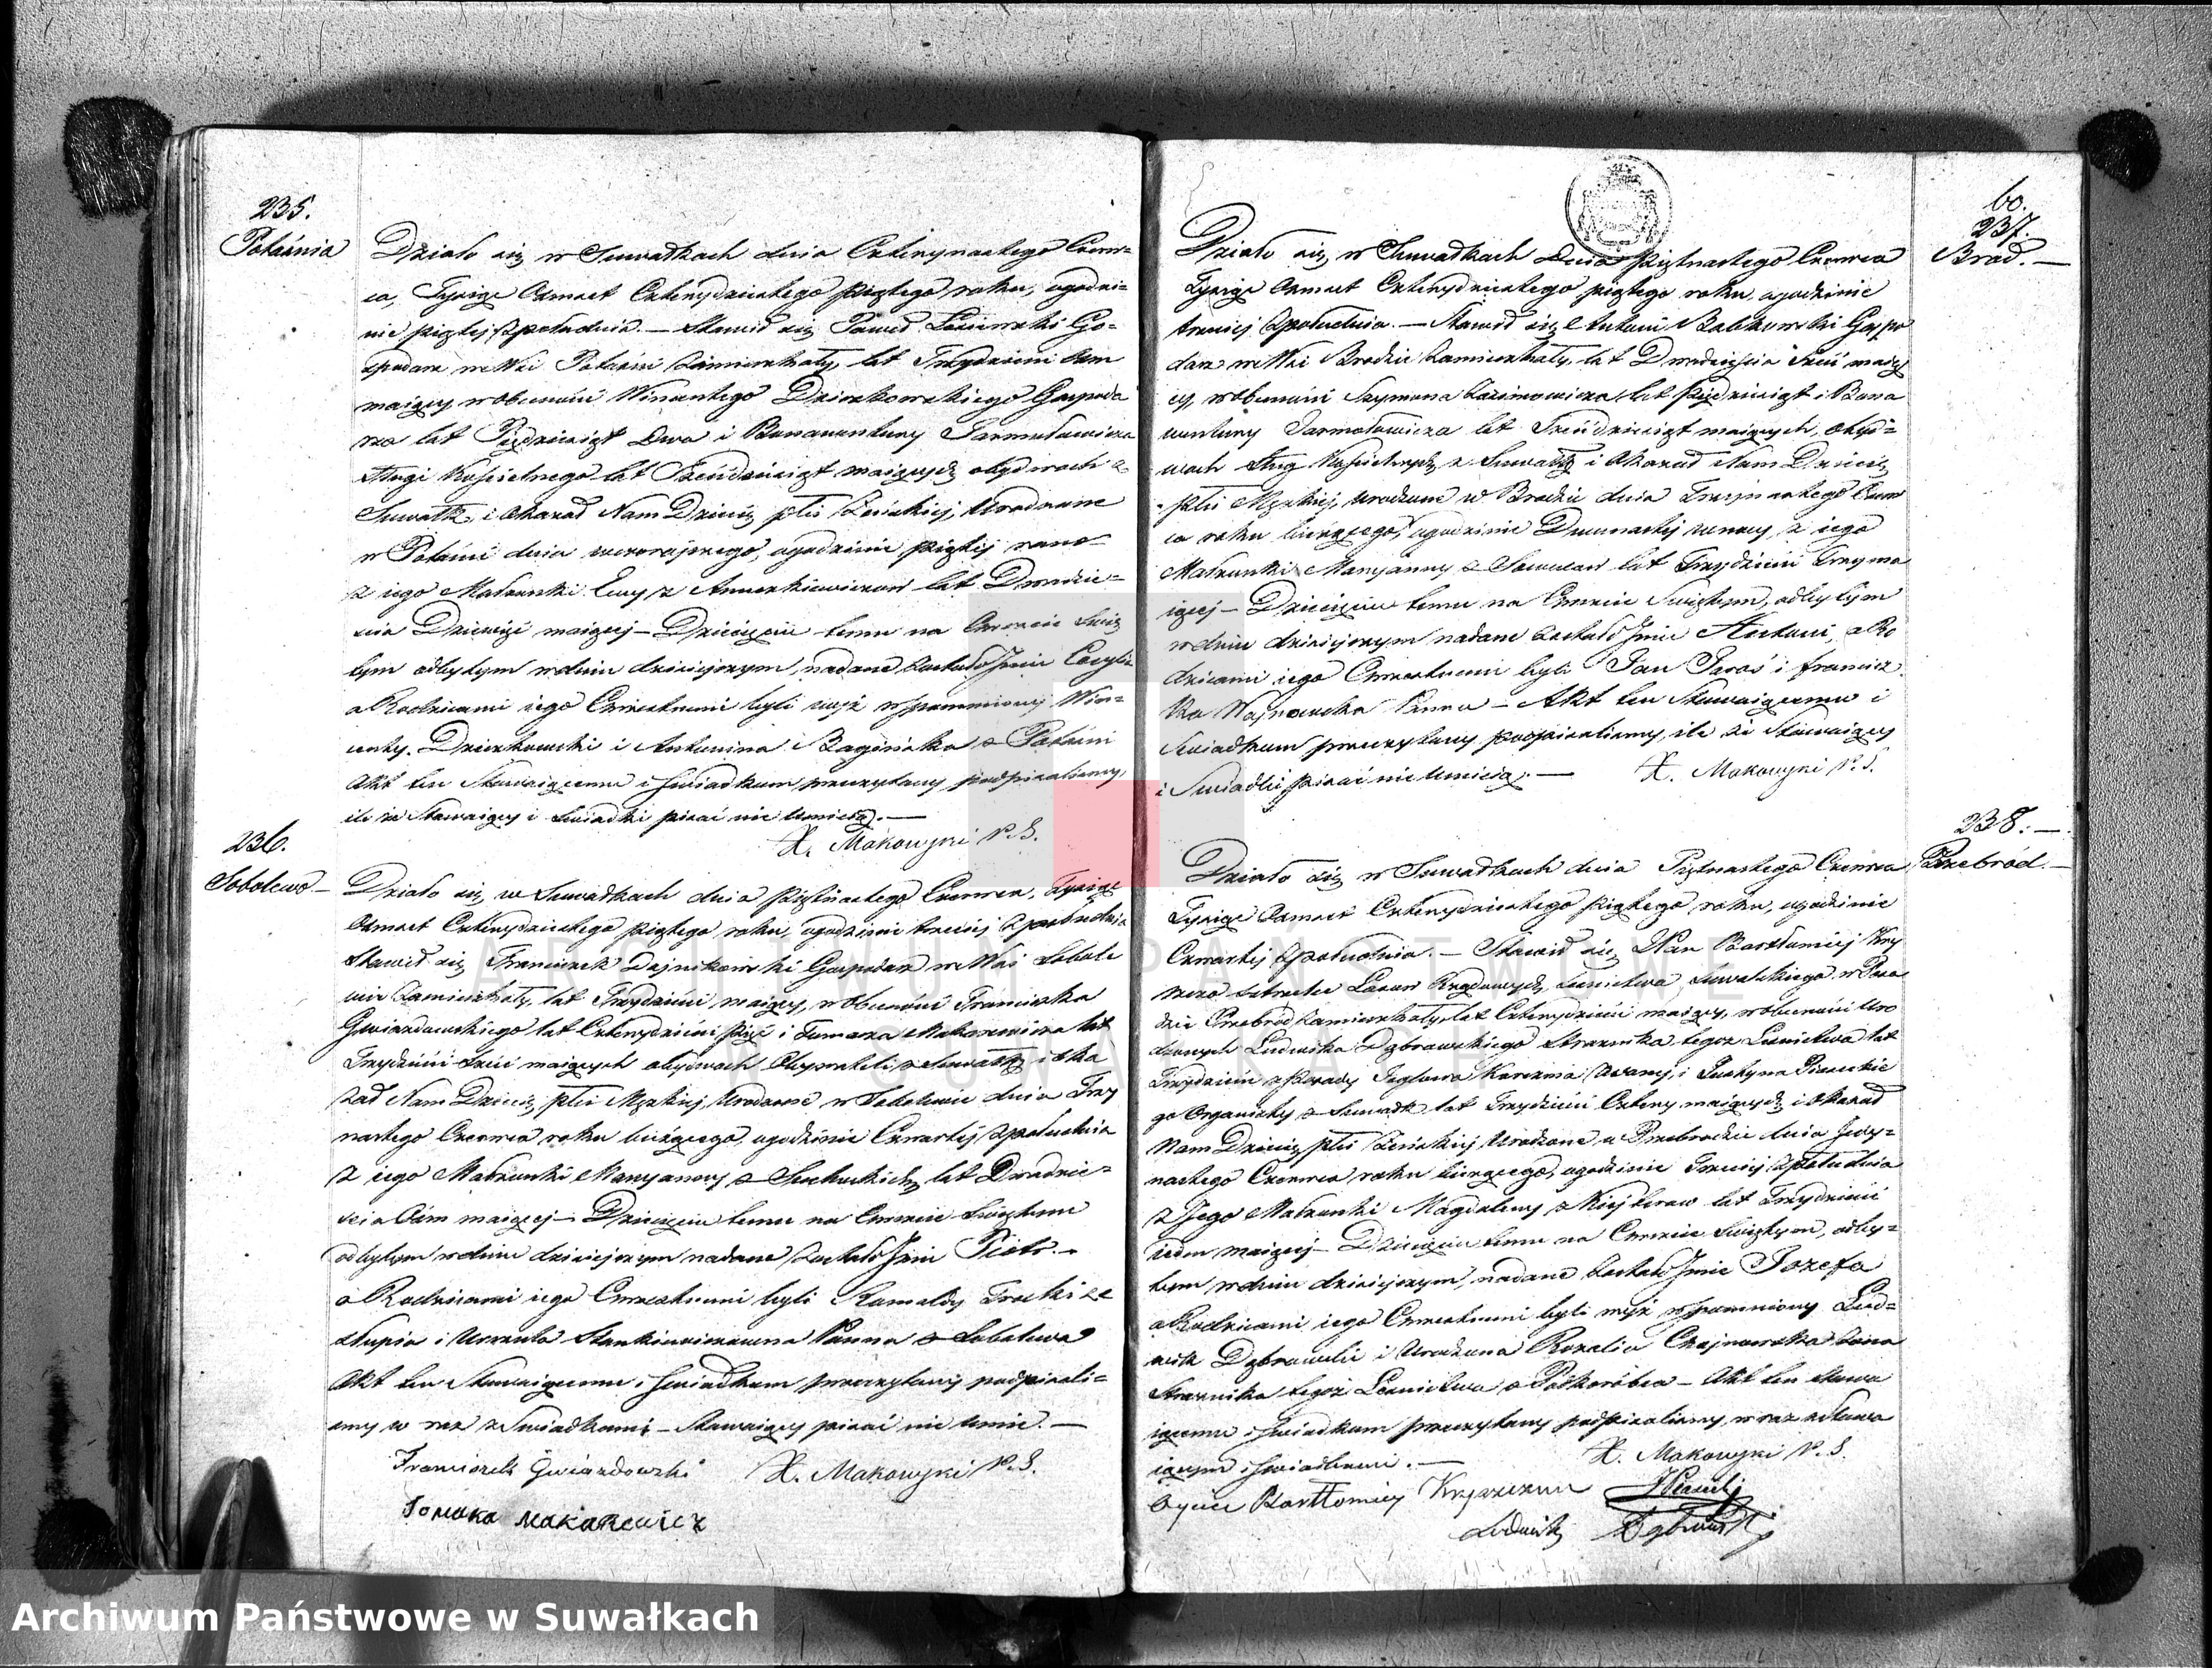 235.
Potaśnia
Działo się w Suwałkach dnia Czternastego Czerw=
ca, Tysiąc Osmset Czterdziestego piątego roku, ogodzi=
nie piątej zpołudnia. — Stawił się Paweł Go=
spodarz we Wsi Potaśni zamieszkały, lat Trzydzieści
maiący w obecności Wincentego Dzienkowskiego Gospoda
rza lat Pięćdziesiąt Dwa i Bonawentury Jarmołowicza
Sługi Kościelnego lat Sześćdziesiąt maiących obydwoch z
Suwałk, i okazał Nam Dziecię płci Żeńskiej, Urodzone
w Potaśni dnia wczorajszego, ogodzinie piątej rano
z iego Małżonki Ewy z lat Dwadzie=
ścia Dziewięć maiącej — Dziecięciu temu na Chrzcie Świę
tym odbytym w dniu dzisiejszym, nadane zostało Jmie Cecylia
a Rodzicami iego Chrzestnemi byli wyż wspomniony Win=
centy Dzienkowski i Antonina Bagińska z Potaśni
Akt ten Stawaiącemu i Swiadkom przeczytany podpisaliśmy,
ile że Stawaiący i Swiadki pisać nie umieią. —
X. Makowski P.S.
236.
Sobolewo —
Działo się w Suwałkach dnia piętnastego Czerwca, Tysiąc
Osmset Czterdziestego piątego roku, ogodzinie trzeciej zpołudnia
Stawił się Franciszek Dajnikowski Gospodarz we Wsi Sobole
wie zamieszkały, lat Trzydzieści maiący, w obecności Franciszka
Gwiazdowskiego lat Czterdzieści pięć i Tomasza Makarewicza lat
Trzydzieści sześć maiących obydwoch Obywateli z Suwałk i oka
zał Nam Dziecię płci Męzkiej Urodzone w Sobolewie dnia Trzy
nastego Czerwca roku bieżącego, ogodzinie Czwartej zpołudnia
z iego Małżonki Maryanny z lat Dwadzie=
ścia Ośm maiącej — Dziecięciu temu na Chrzcie Swiętym
odbytym w dniu dzisiejszym nadane zostało Jmie Piotr. —
a Rodzicami iego Chrzestnemi byli Romuald Trocki z
Słupia i Urszula Stankiewiczowna Panna z Sobolewa
Akt ten Stawaiącemu i Swiadkom przeczytany podpisali=
śmy w raz z Swiadkami — Stawaiący pisać nie umie. —
Franciszek Gwiazdowski X. Makowski P.S.
Tomasz Makarewicz
60.
237.
Brod. —
Działo się w Suwałkach Dnia piętnastego Czerwca
Tysiąc Osmset Czterdziestego piątego roku, ogodzinie
trzeciej zpołudnia. — Stawił się Antoni Babkowski Gospo
darz we Wsi Brodzie zamieszkały, lat Dwadzieścia Sześć maią
cy, w obecności Szymona Kazimowicza lat pięćdziesiąt i Bona
wentury Jarmołowicza lat Sześćdziesiąt maiących, obyd=
woch Sług Kościelnych z Suwałk i okazał Nam Dziecię
płci Męzkiej, urodzone w Brodzie dnia Trzynastego Czerw
ca roku bieżącego, ogodzinie Dwunastej w nocy z iego
Małżonki Maryanny z lat Trzydzieści Trzy ma
iącej — Dziecięciu temu na Chrzcie Swiętym, odbytym
w dniu dzisiejszym nadane zostało Jmie Antoni, a Ro
dzicami iego Chrzestnemi byli Jan Jaroś i Francisz
ka Wajnowska Panna — Akt ten Stawaiącemu i
Swiadkom przeczytany podpisaliśmy, ile że Stawaiący
i Swiadki pisać nie umieią. — X. Makowski P.S.
238. —
Przebród. —
Działo się w Suwałkach dnia Piętnastego Czerwca
Tysiąc Osmset Czterdziestego piątego roku, ogodzinie
Czwartej zpołudnia. — Stawił się, Pan Bartłomiej Krzy
Lasow Rządowych, Leśnictwa Suwalskiego w Prze
brodzie zamieszkały, lat Czterdzieści maiący, w obecności Uro
dzonych Ludwika Dąbrowskiego Strażnika tegoż Leśnictwa lat
Trzydzieści zwany, i
go Organisty z Suwałk lat Trzydzieści Cztery maiących i okazał
Nam Dziecię płci Żeńskiej Urodzone w Przebrodzie dnia Jedy=
nastego Czerwca roku bieżącego, ogodzinie Trzeciej zpołudnia
z Jego Małżonki Magdaleny z lat Trzydzieści
siedm maiącej — Dziecięciu temu na Chrzcie Swiętym, odby=
tem w dniu dzisiejszym, nadane zostało Jmie Jozefa
a Rodzicami iego Chrzestnemi byli wyż wspomniony Lud=
wik Dąbrowski i Urodzona Rozalia Chojnowska żona
Strażnika tegoż Leśnictwa z — Akt ten Stawa
iącemu i Swiadkom przeczytany podpisaliśmy, w raz z Stawa
iącym i Swiadkami. — X. Makowski P.S.
Oyciec Bartłomiey
Ludwik Dąbrowski
Archiwum Państwowe w Suwałkach